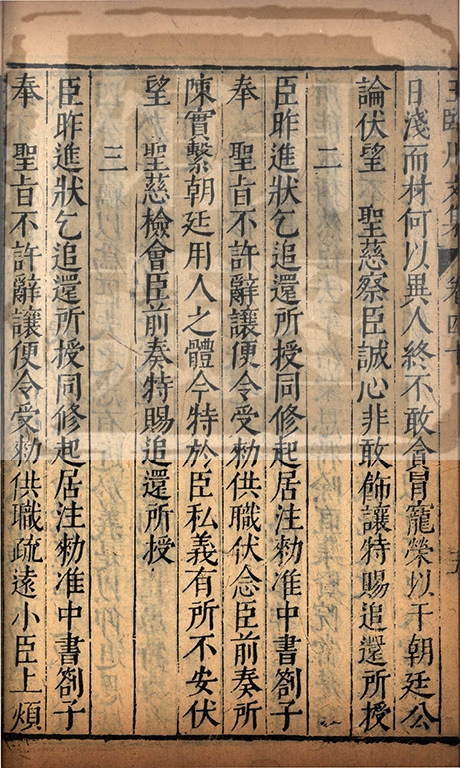 日淺而材何以異人終不敢貪冒寵榮以干朝廷公
論伏望 聖慈察臣誠心非敢飾讓特賜追還所授
二
臣昨進狀乞追還所授同修起居注勑准中書劄子
奉 聖旨不許辭讓便令受勑供職伏念臣前奏所
陳實繫朝廷用人之體今特於臣私義有所不安伏
望 聖慈檢會臣前奏特賜追還所授
三
臣昨進狀乞追還所授同修起居注勑准中書劄子
奉 聖旨不許辭讓便令受勑供職疏遠小臣上煩